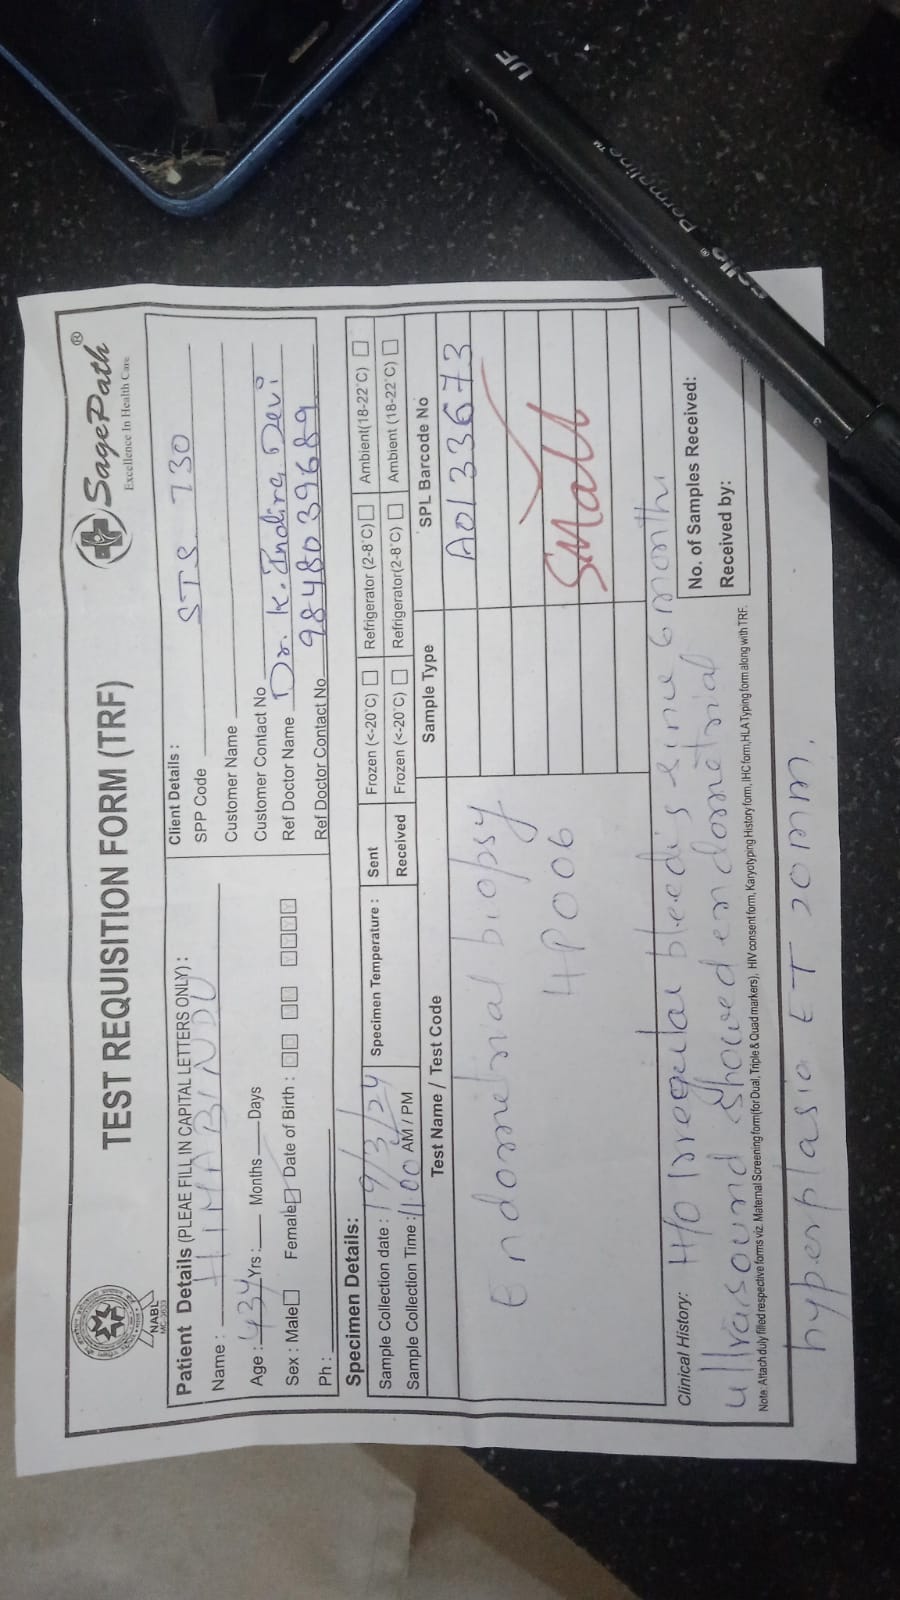 TEST REQUISITION FORM (TRF)
SagePath®
Excellence In Health Care
NABL
Patient Details (PLEAE FILL IN CAPITAL LETTERS ONLY) :
Name : HIMA BINDU
Age : 43y Yrs : Months Days
Sex : Male Female Date of Birth :
Ph :
Client Details :
SPP Code STS 730
Customer Name
Customer Contact No
Ref Doctor Name Dr. K. Indira Devi
Ref Doctor Contact No 9848039689
Specimen Details:
Sample Collection date : 9/3/24
Sample Collection Time : 11.00 AM / PM
Specimen Temperature :
Sent Frozen (<-20°C) Refrigerator (2-8°C) Ambient(18-22°C)
Received Frozen (<-20°C) Refrigerator(2-8°C) Ambient (18-22°C)
Test Name / Test Code Sample Type SPL Barcode No
Endometrial biopsy A0133673
HP006
Small
Clinical History: H/O Irregular bleedis since 6 months
ultrasound showed endometrial
No. of Samples Received:
Received by:
Note: Attach duly filled respective forms viz. Maternal Screening form(for Dual, Triple & Quad markers), HIV consent form, Karyotyping History form, IHC form,HLA Typing form along with TRF.
hyperplasia ET 20mm.
UF
Permaline™